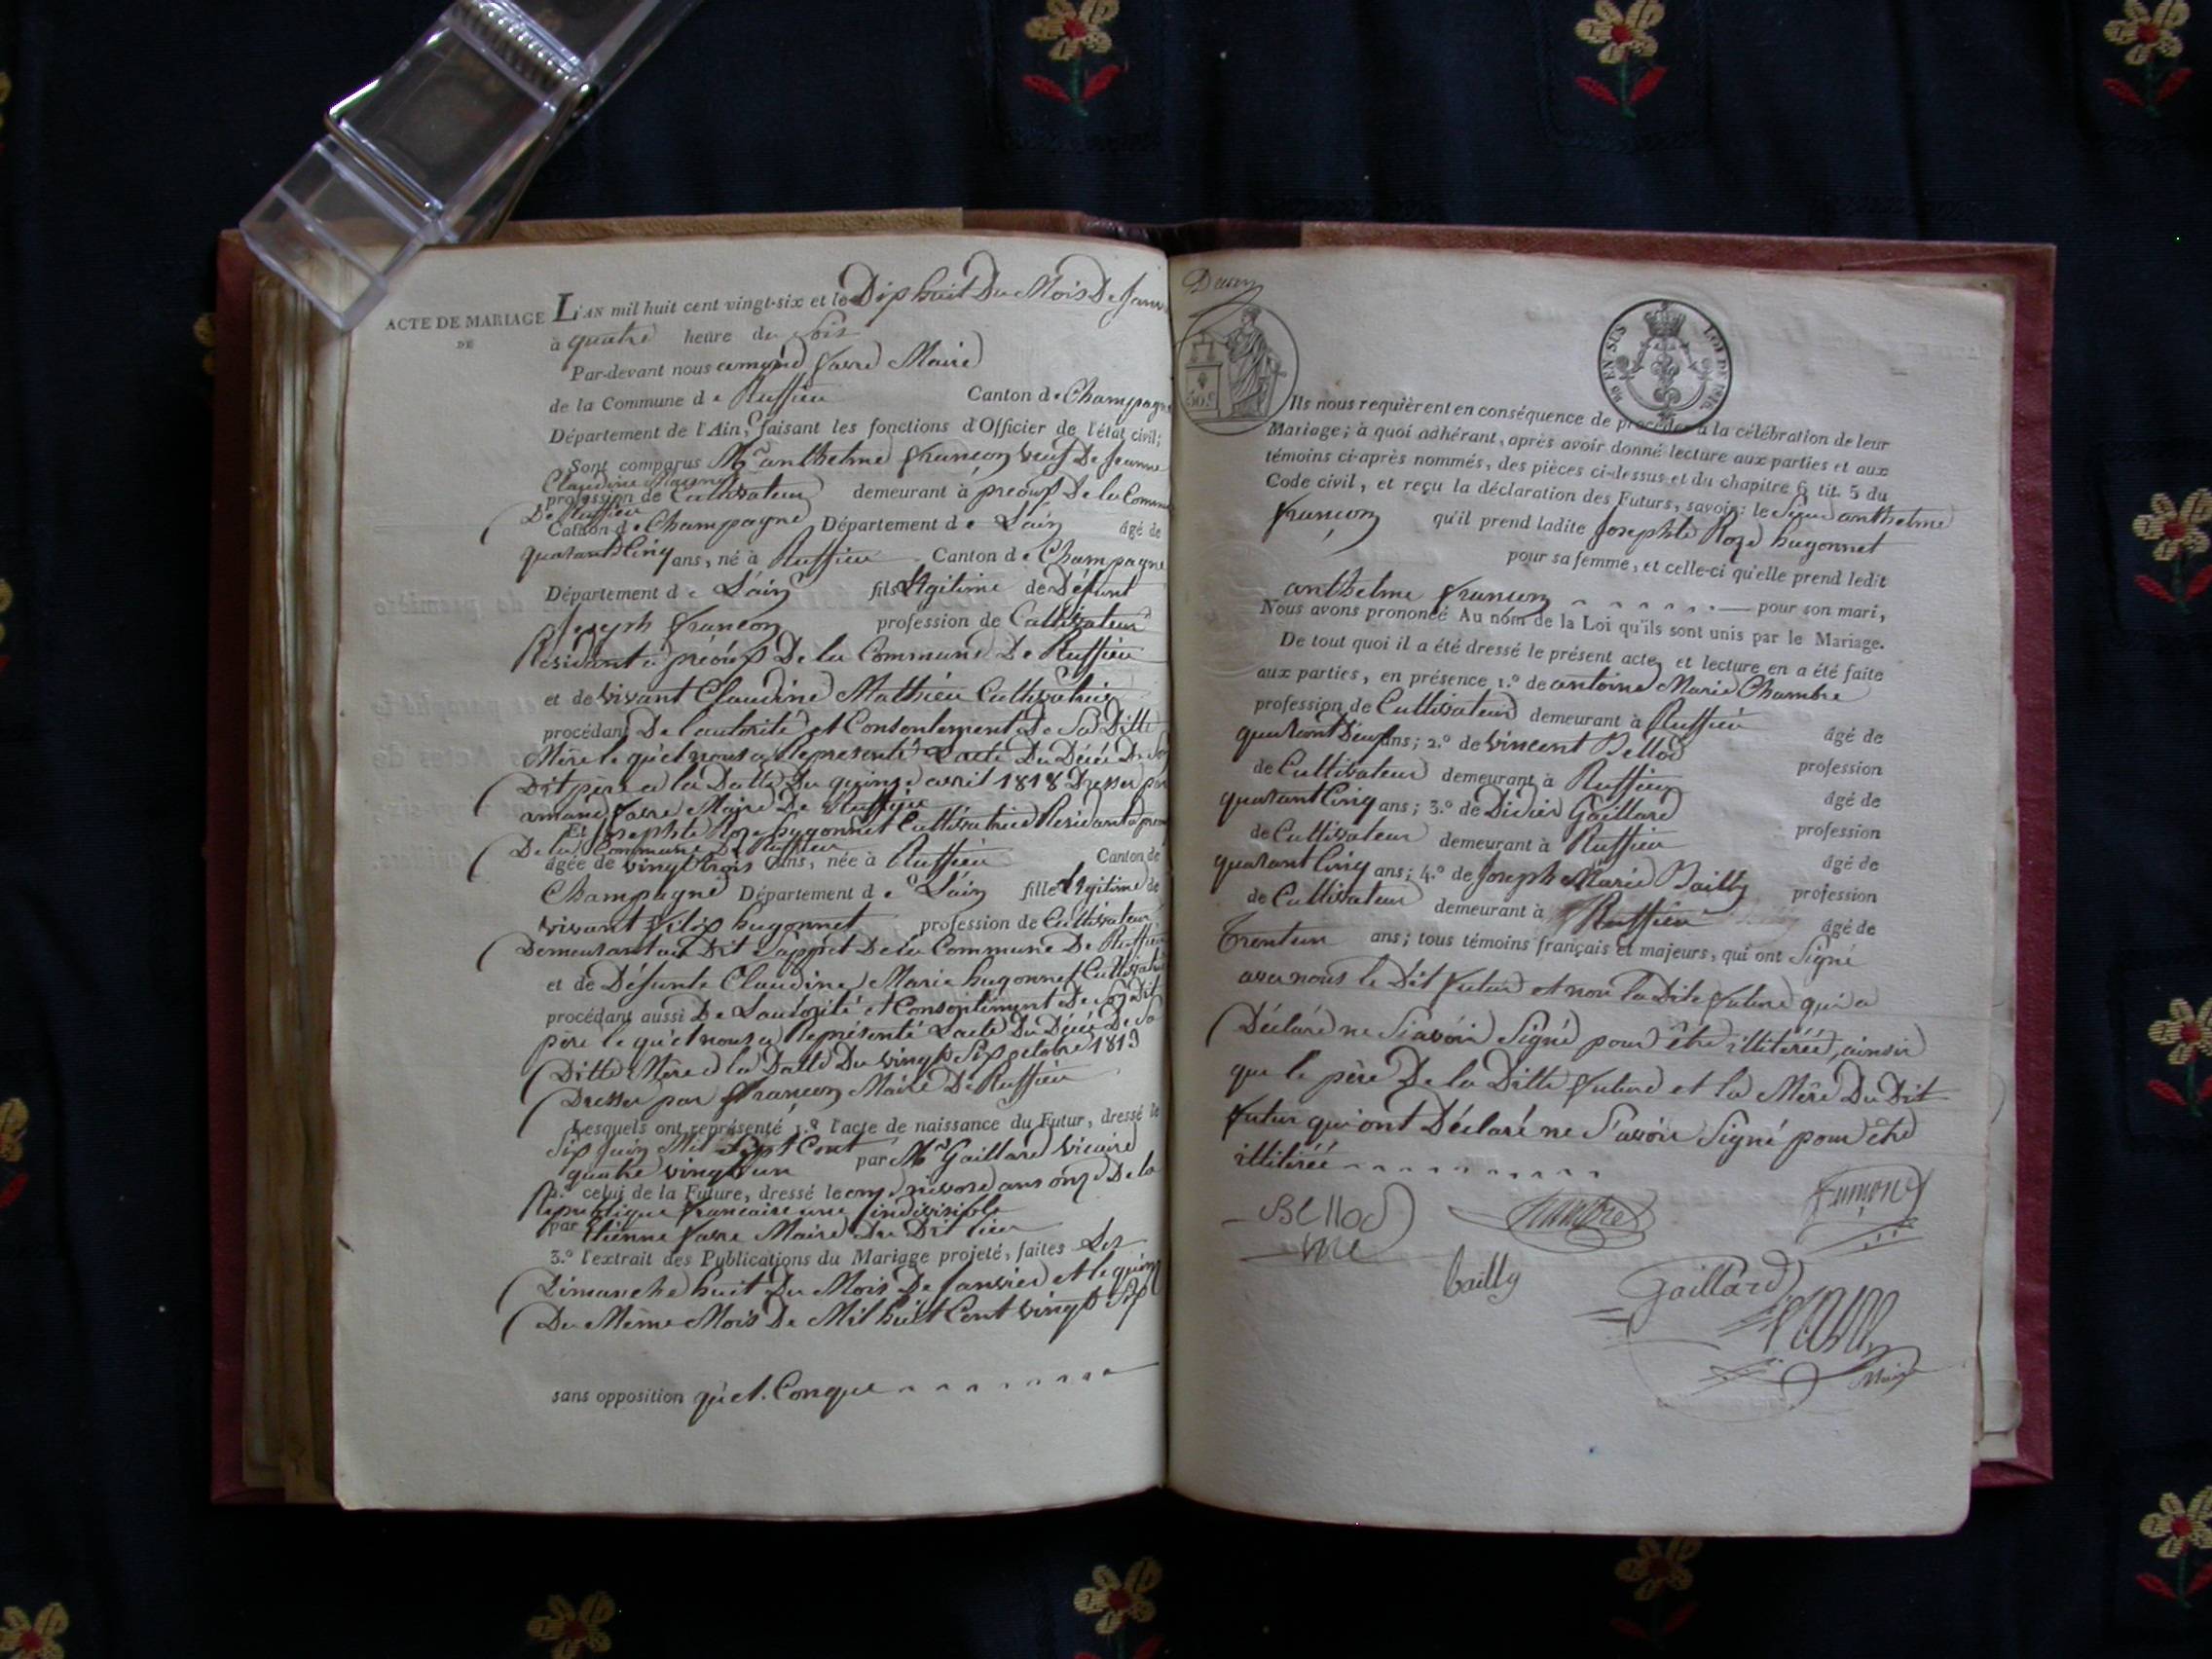 ACTE DE MARIAGE
DE
L'AN mil huit cent vingt-six et le Dix huit Du Mois De Janv
à quatre heure du Soir
Par-devant nous armand favre Maire
de la Commune de Ruffieu Canton de Champagne
Département de l'Ain, faisant les fonctions d'Officier de l'état civil;
Sont comparus Mr anthelme françon veuf De Jeanne
Claudine
profession de Cultivateur demeurant à préoux De la Commune
De Ruffieu
Canton de Champagne Département de Lain âgé de
quarant Cinq ans, né à Ruffieu Canton de Champagne
Département de Lain fils Légitime de Défunt
Joseph françon profession de Cultivateur
Résidant à préoux De la Commune De Ruffieu
et de vivant Claudine Mathieu Cultivatrice
procédant De l'autorité et Consentement De Sa Ditte
Mère le quel nous a Représenté Lacte Du Décée De Son
Dit père a la Datte Du quinze avril 1818 Dresser par
armand favre Maire De Ruffieu
Et Josephte Roze hugonnet Cultivatrice Residant à préoux
De la Commune De Ruffieu
âgée de vingt trois ans, née à Ruffieu Canton de
Champagne Département de Lain fille Légitime de
vivant félix hugonnet profession de Cultivateur
Demeurant au Dit Lappet De la Commune De Ruffieu
et de Défunte Claudine Marie hugonnet Cultivatrice
procédant aussi De Lautorité et Consentement De Son Dit
père le quel nous a Représenté Lacte Du Décée De Sa
Ditte Mère a la Datte Du vingt Six octobre 1813
Dresser par françon Maire De Ruffieu
Lesquels ont représenté 1.° l'acte de naissance du Futur, dressé le
Six juin Mil Sept Cent
quatre vingt un par Mr Gaillard vicaire
2.° celui de la Future, dressé le onze nivose ans onze De la
République francaise une indivisible
par Etienne favre Maire Du Dit lieu
3.° l'extrait des Publications du Mariage projeté, faites Les
Dimanche huit Du Mois De Janvier et le quinze
Du Même Mois De Mil huit Cent vingt Six
sans opposition quel Conque
50 c
EN SUS
LOI DE 1816.
Ils nous requièrent en conséquence de procéder à la célébration de leur
Mariage; à quoi adhérant, après avoir donné lecture aux parties et aux
témoins ci-après nommés, des pièces ci-dessus et du chapitre 6, tit. 5 du
Code civil, et reçu la déclaration des Futurs, savoir: le Sieur anthelme
françon qu'il prend ladite Josephte Roze hugonnet
pour sa femme, et celle-ci qu'elle prend ledit
anthelme françon pour son mari,
Nous avons prononcé Au nom de la Loi qu'ils sont unis par le Mariage.
De tout quoi il a été dressé le présent acte, et lecture en a été faite
aux parties, en présence 1.° de antoine Marie Chambre
profession de Cultivateur demeurant à Ruffieu âgé de
quarant Deux ans; 2.° de vincent Bellod profession
de Cultivateur demeurant à Ruffieu âgé de
quarant Cinq ans; 3.° de Didier Gaillard profession
de Cultivateur demeurant à Ruffieu âgé de
quarant Cinq ans; 4.° de Joseph Marie Bailly profession
de Cultivateur demeurant à Ruffieu âgé de
Trentun ans; tous témoins français et majeurs, qui ont Signé
avec nous le Dit futur et non la Dite future qui a
Déclaré ne Savoir Signé pour être illitérée, ainsi
que le père De la Ditte future et la Mère Du Dit
futur qui ont Déclaré ne Savoir Signé pour être
illitérée
Bellod
Chambre
françon
bailly
Gaillard
Maire